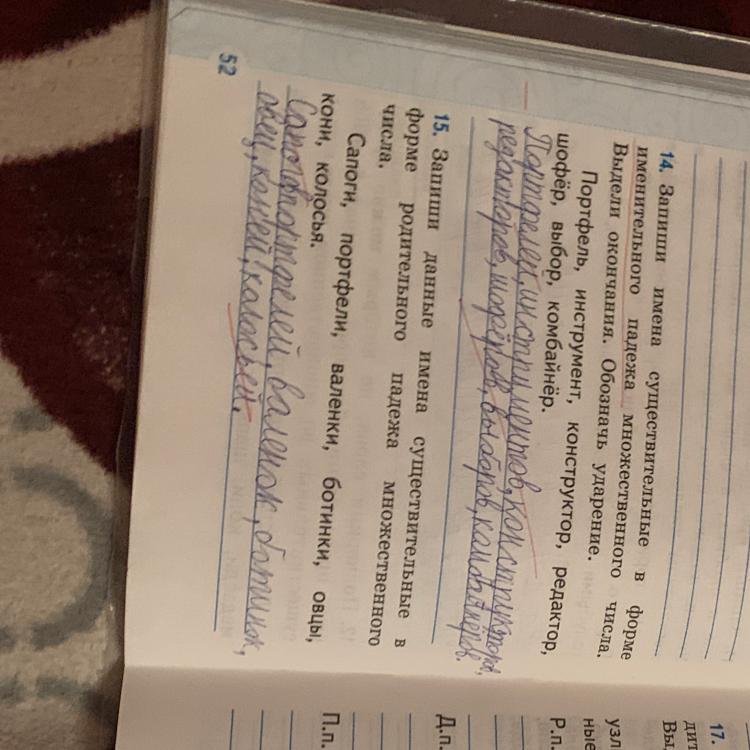 14. Запиши имена существительные в форме
именительного падежа множественного числа.
Выдели окончания. Обозначь ударение.
Портфель, инструмент, конструктор, редактор,
шофёр, выбор, комбайнёр.
Портфелей, инструментов, конструкторов,
редакторов, шофёров, выборов, комбайнёров.
15. Запиши данные имена существительные в
форме родительного падежа множественного
числа.
Сапоги, портфели, валенки, ботинки, овцы,
кони, колосья.
портфелей, валенок, ботинок,
овец, коней,
52
17.
дит
Вы
узл
ные
Р.п.
Д.п.
П.п.